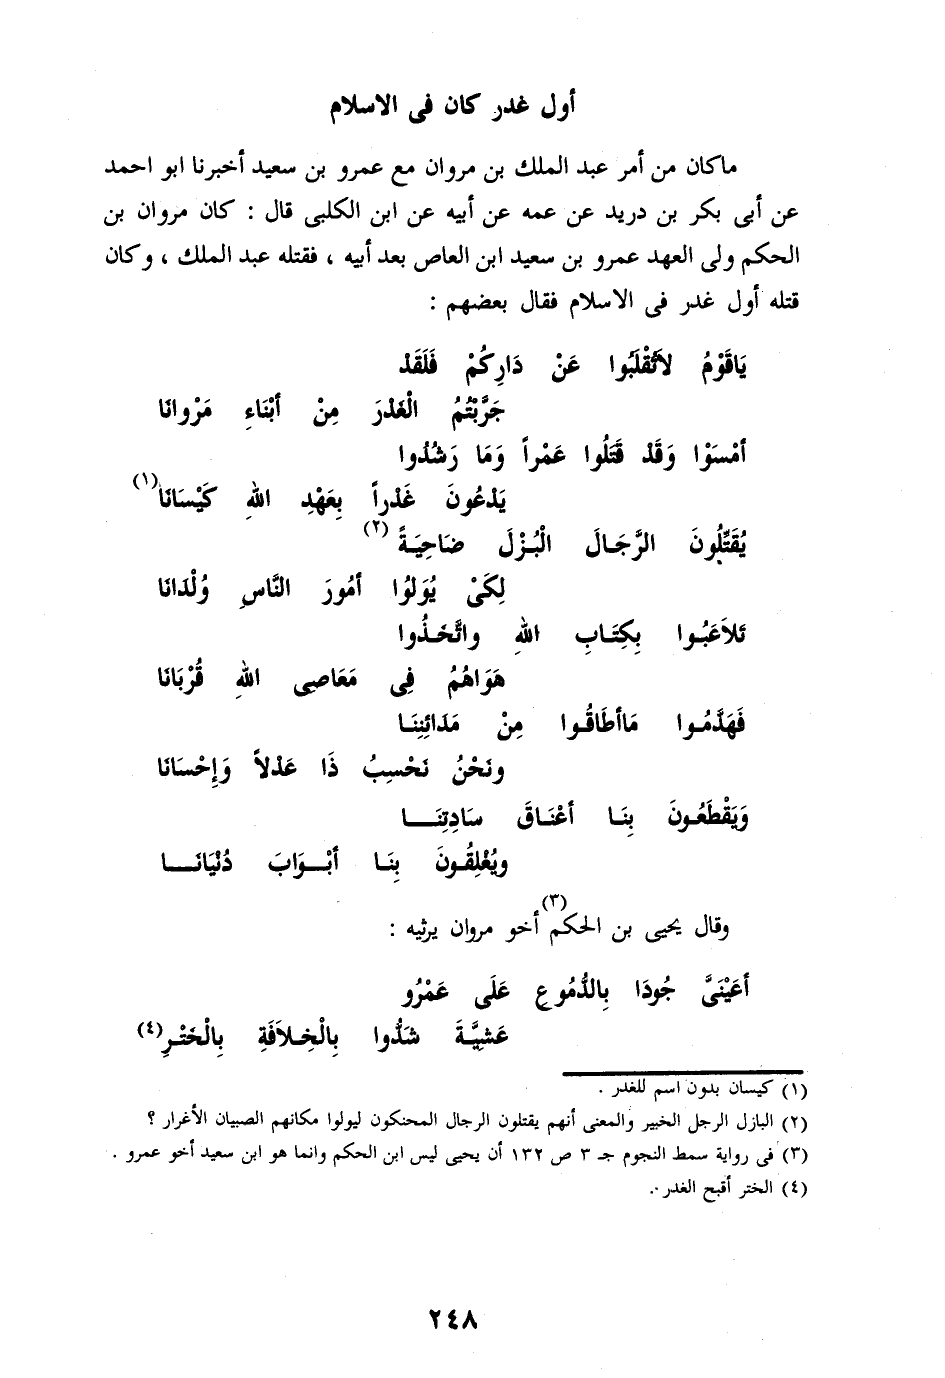 أول غدر كان فى الاسلام
ماكان من أمر عبد الملك بن مروان مع عمرو بن سعيد أخبرنا ابو احمد
عن أبى بكر بن دريد عن عمه عن أبيه عن ابن الكلبى قال : كان مروان بن
الحكم ولى العهد عمرو بن سعيد ابن العاص بعد أبيه ، فقتله عبد الملك ، وكان
قتله أول غدر فى الاسلام فقال بعضهم :
يَاقَوْمُ لاَتُقْلَبُوا عَنْ دَارِكُمْ فَلَقَدْ
جَرَّبْتُمُ الْغَدْرَ مِنْ أبْنَاءِ مَرْوانَا
أمْسَوْا وَقَدْ قَتَلُوا عَمْراً وَمَا رَشُدُوا
يَدْعُونَ غَدْراً بِعَهْدِ اللهِ كَيْسَانَا(١)
يُقَتِّلُونَ الرَّجَالَ الْبُزْلَ ضَاحِيَةً (٢)
لِكَىْ يُوَلوُا أمُورَ النَّاسِ وُلْدَانَا
تَلاَعَبُوا بِكِتَابِ اللهِ واتَّخَذُوا
هَوَاهُمُ فِى مَعَاصِى اللهِ قُرْبَانَا
فَهَدَّمُوا مَاأطَاقُوا مِنْ مَدَائِنِنَا
ونَحْنُ نَحْسِبُ ذَا عَدْلاً وَإِحْسَانَا
وَيَقْطَعُونَ بِنَا أعْنَاقَ سَادِتِنَا
ويُغْلِقُونَ بِنَا أبْوَابَ دُنْيَانَا
وقال يحيى بن الحكم(٣) أخو مروان يرثيه :
أعَيْنَىَّ جُودَا بِالدُّمُوعِ عَلَى عَمْرُو
عَشِيَّةَ شَدُّوا بِالْخِلاَفَةِ بِالْخَتْرِ(٤)
(١) كيسان بدون اسم للغدر .
(٢) البازل الرجل الخبير والمعنى أنهم يقتلون الرجال المحنكون ليولوا مكانهم الصبيان الأغرار ؟
(٣) فى رواية سمط النجوم جـ ٣ ص ١٣٢ أن يحيى ليس ابن الحكم وانما هو ابن سعيد أخو عمرو .
(٤) الختر أقبح الغدر .
٢٤٨